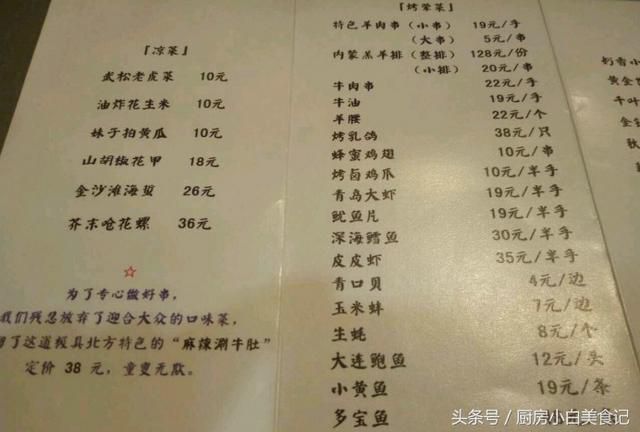 「凉菜」
武松老虎菜 10元
油炸花生米 10元
妹子拍黄瓜 10元
山胡椒花甲 18元
金沙滩海蜇 26元
芥末呛花螺 36元
☆
为了专心做好串,
我们残忍放弃了迎合大众的口味菜,
了这道极具北方特色的“麻辣涮牛肚”
定价 38 元, 童叟无欺.
「烤荤菜」
特色羊肉串(小串) 19元/手
(大串) 5元/串
内蒙羔羊排(整排) 128元/份
(小排) 20元/串
牛肉串 22元/手
牛油 19元/手
羊腰 22元/个
烤乳鸽 38元/只
蜂蜜鸡翅 10元/串
烤卤鸡爪 10元/半手
青岛大虾 19元/半手
鱿鱼片 19元/半手
深海鳕鱼 30元/半手
皮皮虾 35元/半手
青口贝 4元/边
玉米蚌 7元/边
生蚝 8元/个
大连鲍鱼 12元/头
小黄鱼 19元/条
多宝鱼
奶香小
黄金
千叶
金
秋
头条号 / 厨房小白美食记